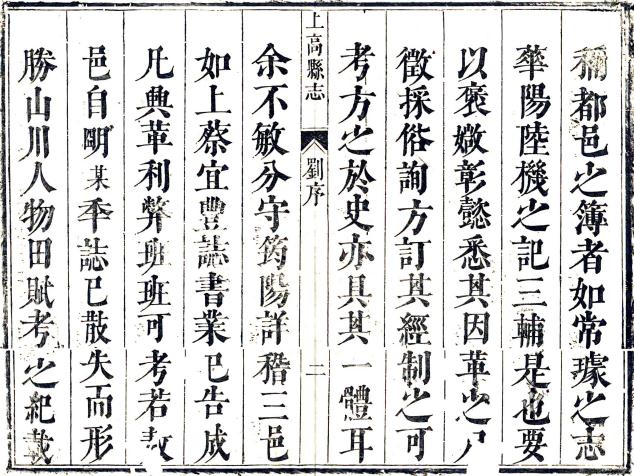 稱都邑之簿者如常璩之志
華陽陸機之記三輔是也要
以褒媺彰懿悉其因革之
徵採俗詢方訂其經制之可
考方之於史亦具其一體耳
上高縣志
劉序
二
余不敏分守筠陽詳稽三邑
如上蔡宜豐誌書業已告成
凡興革利弊班班可考若
邑自明某季誌已散失而形
勝山川人物田賦考之紀載